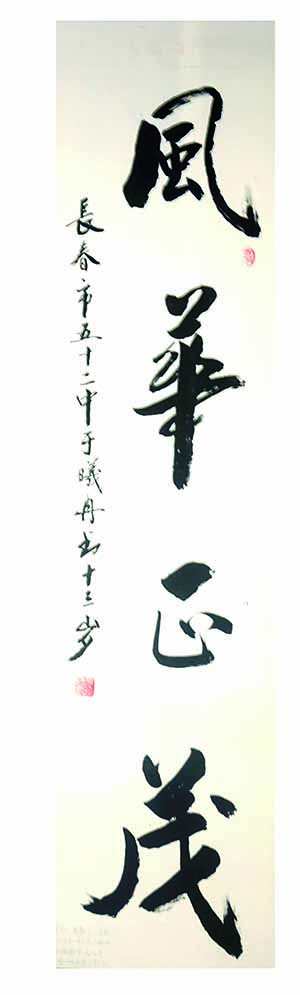 風華正茂
長春市五十二中于曦丹书十三岁